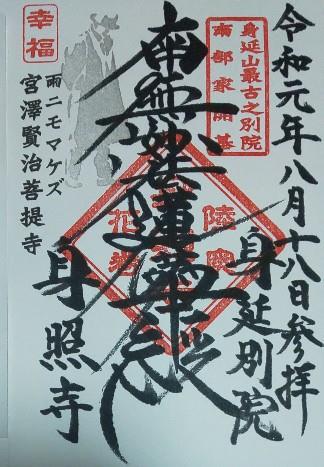 令和元年八月十八日参拝
身延別院
身延山最古之別院
南部家開基
南無妙法蓮華経
陸奥
花巻
身照寺
幸福
雨ニモマケズ
宮澤賢治菩提寺